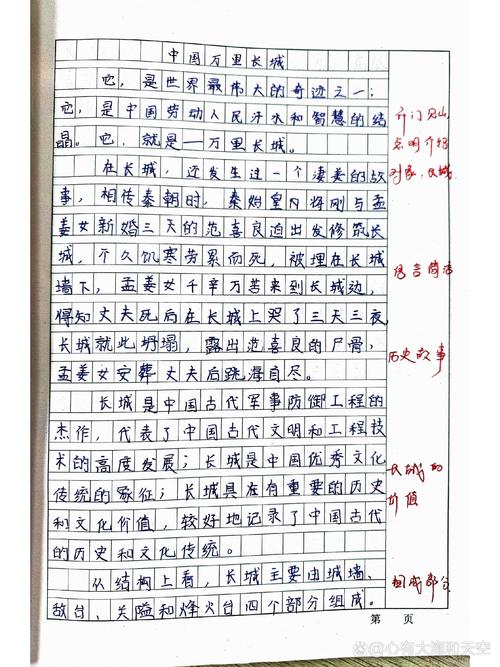 中国万里长城
它，是世界最伟大的奇迹之一；
它，是中国劳动人民汗水和智慧的结
晶。它，就是——万里长城。
在长城，还发生过一个凄美的故
事，相传秦朝时，秦始皇内将刚与孟
姜女新婚三天的范喜良迫出发修筑长
城，不久饥寒劳累而死，被埋在长城
墙下，孟姜女千辛万苦来到长城边，
得知丈夫死后在长城上哭了三天三夜，
长城就此坍塌，露出范喜良的尸骨，
孟姜女安葬丈夫后跳海自尽。
长城是中国古代军事防御工程的
杰作，代表了中国古代文明和工程技
术的高度发展；长城是中国优秀文化
传统的象征；长城具在有重要的历史
和文化价值，较好地记录了中国古代
的历史和文化传统。
从结构上看，长城主要由城墙、
敌台，关隘和烽火台四个部分组成。
开门见山
点明介绍
对象：长城
语言简洁
历史故事
长城的
价值
组成部分
第 页
@心有大海和天空